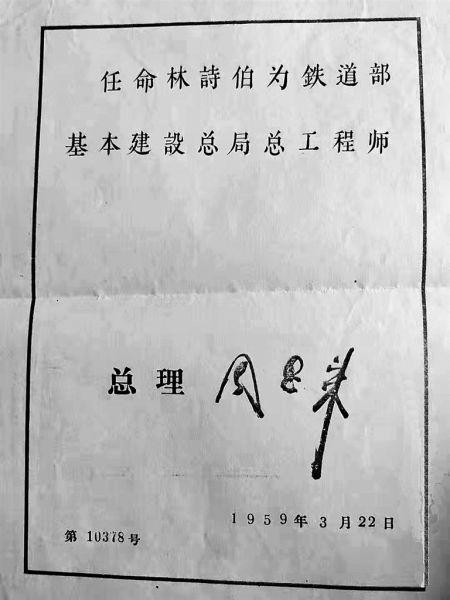 任命林詩伯为鉄道部
基本建設总局总工程师
总理 周恩来
1959年3月22日
第 10378号